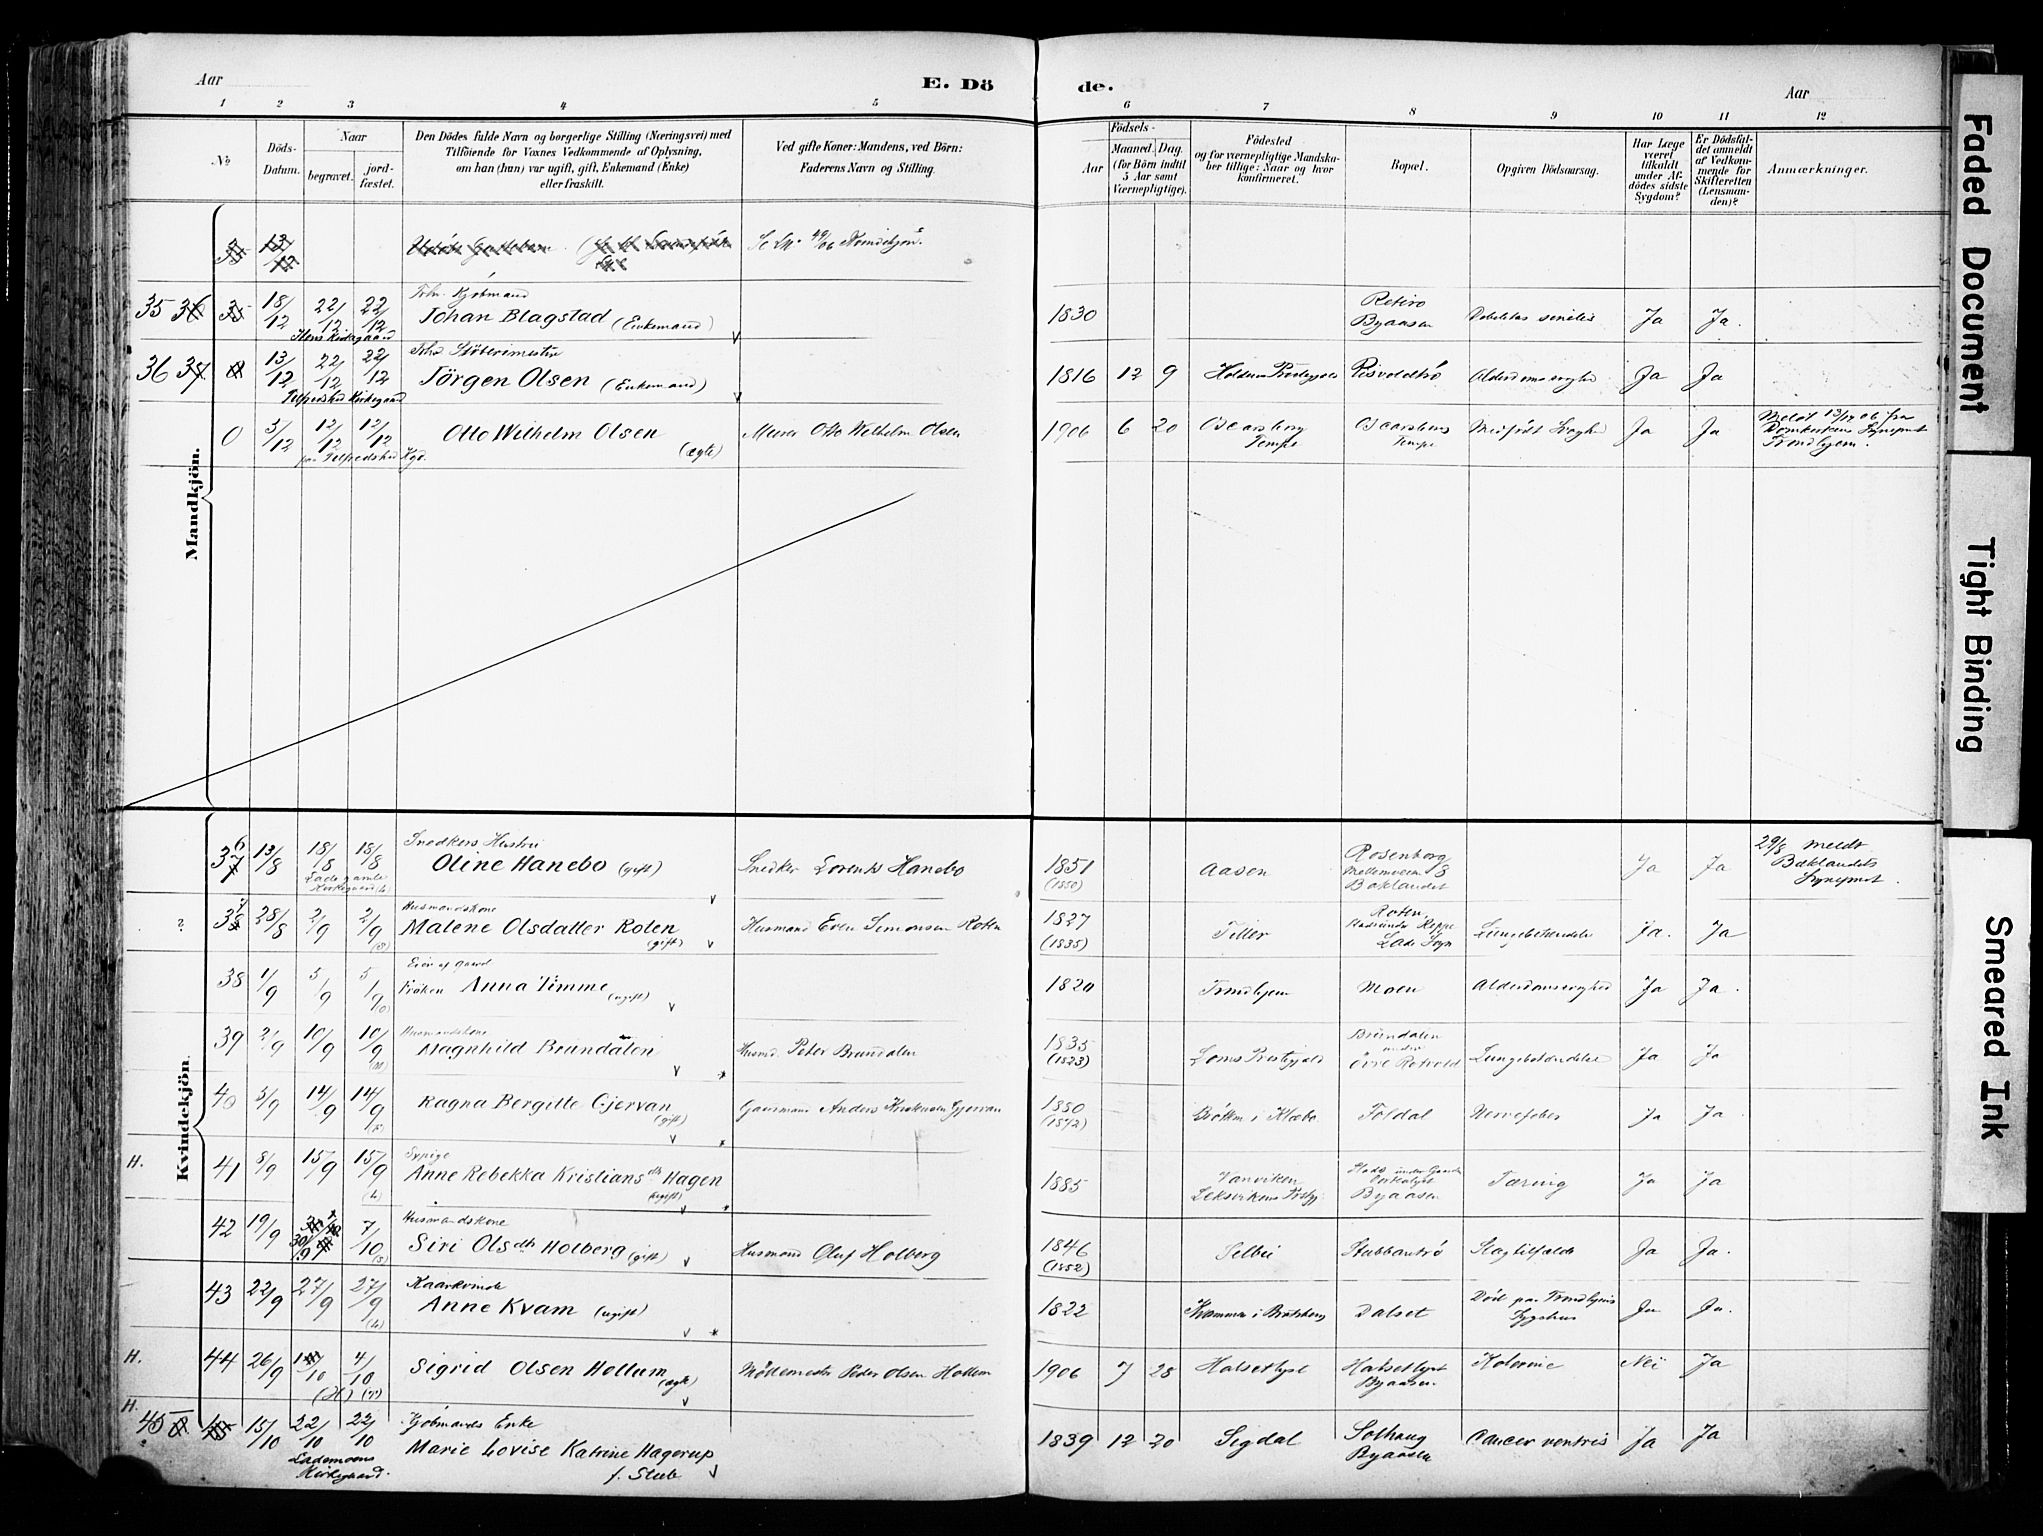 Aar
E. Dö
de.
Aar
1 2 3 4 5 6 7 8 9 10 11 12
No
Döds-
Datum.
Naar
begravet.
jord-
fæstet.
Den Dödes fulde Navn og borgerlige Stilling (Næringsvei) med
Tilföiende for Voxnes Vedkommende af Oplysning,
om han (hun) var ugift, gift, Enkemand (Enke)
eller fraskilt.
Ved gifte Koner: Mandens, ved Börn:
Faderens Navn og Stilling.
Födsels-
Aar
Maaned.
Dag.
(for Börn indtil
5 Aar samt
Værnepligtige).
Födested
og for værnepligtige Mandska-
ber tillige: Naar og hvor
konfirmeret.
Bopæl.
Opgiven Dödsaarsag.
Har Læge
været
tilkaldt
under Af-
dödes sidste
Sygdom?
Er Dödsfal-
det anmeldt
af Vedkom-
mende for
Skifteretten
(Lensman-
den)?
Anmærkninger.
Mandkjön.
13/12
35 18/12 22/12 22/12
Johan Blagstad (Enkemand)
1830
Retiro
Byaasen
Ja Ja.
36 13/12 22/12 22/12
Jörgen Olsen (Enkemand)
1816 12 9
Alderdomssvaghed
Ja Ja
0 5/12 12/12 12/12
Otto Wilhelm Olsen
(ægte)
Murer Otto Wilhelm Olsen
1906 6 20
Oscarsborg
Tempe
Oscarsborg
Tempe
Medfödt Svaghed
Ja Ja
Meldt 13/12 06 fra
Domkirkens Sogneprest
Trondhjem.
Kvindekjön.
36 13/8 18/8 18/8
Lade gamle
Kirkegaard
Snedkers Hustru
Oline Hanebo (gift)
Snedker Lorents Hanebo
1851
(1850)
Aasen
Rosenborg
Mellemveien 8
Baklandet
Ja Ja
29/8 meldt
Baklandets
Sognepret.
? 37 28/8 2/9 2/9
Husmandskone
Malene Olsdatter Roten
(gift)
Husmand Even Simonsen Roten
1827
(1835)
Tiller
Roten,
Lade Sogn
Lungebetændelse
Ja. Ja
38 1/9 5/9 5/9
Eier af Gaard
Fröken Anna Timme
(ugift)
1820
Trondhjem
Moen
Alderdomssvaghed
Ja Ja.
39 2/9 10/9 10/9
Husmandskone
Magnhild Brundalen
Husmd. Peter Brundalen
1835
(1823)
Loms Prestgjeld
Brundalen
under
Övre Rotvold
Lungebetændelse
Ja Ja
40 5/9 14/9 14/9
Ragna Bergitte Gjervan
(gift)
Gaarmand Anders Kristensen Gjervan
1880
(1872)
Bröttem i Klæbo
Foldal
Nervefeber
Ja Ja
H. 41 8/9 15/9 15/9
Sypige
Anne Rebekka Kristiansdtr Hagen
(ugift)
1885
Vanviken
Leksvikens Prstgj.
Byaasen
Tæring
Ja Ja
42 19/9 30/9 7/10
Husmandskone
Siri Olsdtr Holberg (gift)
Husmand Oluf Holberg
1846
(1852)
Selbu
Stubbantrö
Slagtilfælde
Ja Ja.
43 22/9 27/9 27/9
Kaarkvinde
Anne Kvam (ugift)
1822
Dalset
Död paa Trondhjems
Sygehus
Ja Ja.
H. 44 26/9 4/10
Sigrid Olsen Hollum
(ægte)
Möllemester Peder Olsen Hollum
1906 7 28
Halsetlyst
Halsetlyst
Byaasen.
Kolerine
Nei Ja
H. 45 15/10 22/10 22/10
Lademoens
Kirkegaard.
Kjöbmands Enke
Marie Lovise Katrine Hagerup
f. Stub
1839 12 20
Sigdal
Solhaug
Byaasen
Cancer ventris
Ja Ja
Faded Document
Tight Binding
Smeared Ink